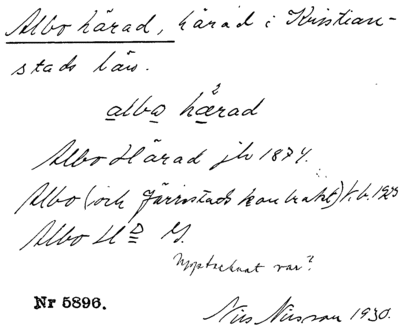 Albo härad, härad i Kristian-
stads län.
albo hærad
Albo Härad jb 1874.
Albo (och Järrestads kontrakt) k.b. 1925
Albo Hd
Upptecknat var?
Nr 5896.
Nils Nilsson 1930.